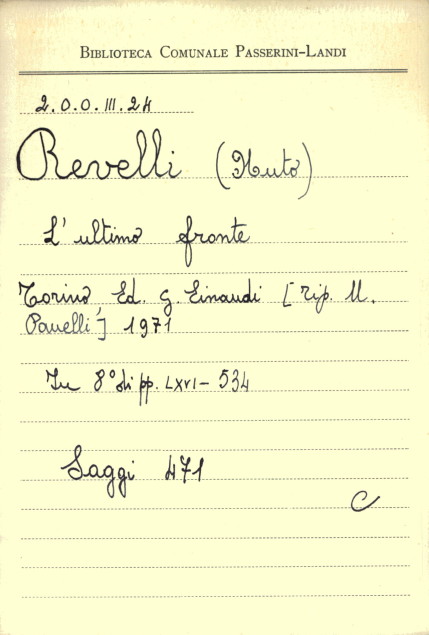 BIBLIOTECA COMUNALE PASSERINI-LANDI
2.0.0.III.24
Revelli (Nuto)
L' ultimo fronte
Torino, Ed. G. Einaudi [Tip. U.
Panelli] 1971
In 8° di pp. LXVI- 534
Saggi 471
C